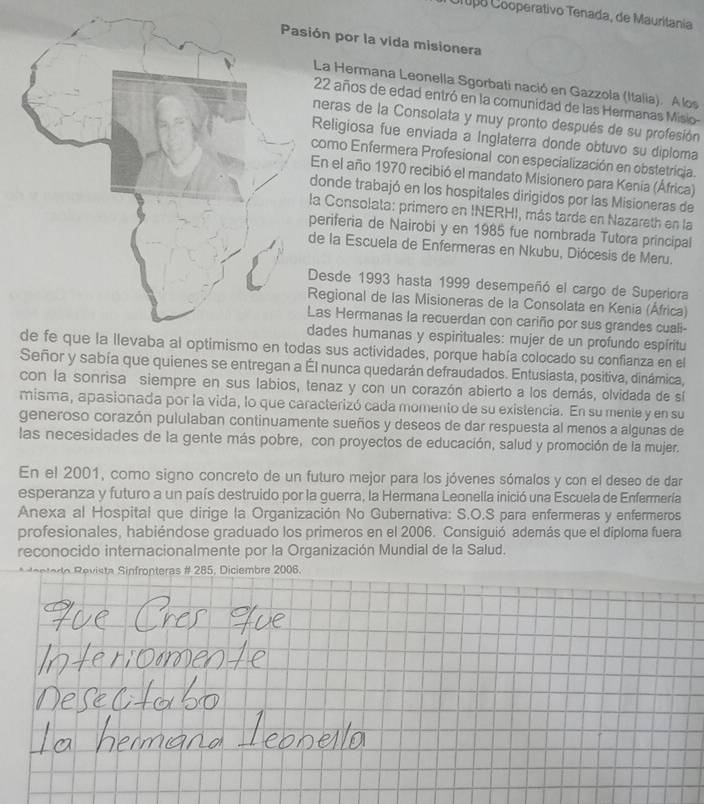 Grupo Cooperativo Tenada, de Mauritania
Pasión por la vida misionera
La Hermana Leonella Sgorbati nació en Gazzola (Italia). A los
22 años de edad entró en la comunidad de las Hermanas Misio-
neras de la Consolata y muy pronto después de su profesión
Religiosa fue enviada a Inglaterra donde obtuvo su diploma
como Enfermera Profesional con especialización en obstetricia.
En el año 1970 recibió el mandato Misionero para Kenia (África)
donde trabajó en los hospitales dirigidos por las Misioneras de
la Consolata: primero en INERHI, más tarde en Nazareth en la
periferia de Nairobi y en 1985 fue nombrada Tutora principal
de la Escuela de Enfermeras en Nkubu, Diócesis de Meru.
Desde 1993 hasta 1999 desempeñó el cargo de Superiora
Regional de las Misioneras de la Consolata en Kenia (África)
Las Hermanas la recuerdan con cariño por sus grandes cuali-
dades humanas y espirituales: mujer de un profundo espíritu
de fe que la llevaba al optimismo en todas sus actividades, porque había colocado su confianza en el
Señor y sabía que quienes se entregan a Él nunca quedarán defraudados. Entusiasta, positiva, dinámica,
con la sonrisa siempre en sus labios, tenaz y con un corazón abierto a los demás, olvidada de sí
misma, apasionada por la vida, lo que caracterizó cada momento de su existencia. En su mente y en su
generoso corazón pululaban continuamente sueños y deseos de dar respuesta al menos a algunas de
las necesidades de la gente más pobre, con proyectos de educación, salud y promoción de la mujer.
En el 2001, como signo concreto de un futuro mejor para los jóvenes sómalos y con el deseo de dar
esperanza y futuro a un país destruido por la guerra, la Hermana Leonella inició una Escuela de Enfermería
Anexa al Hospital que dirige la Organización No Gubernativa: S.O.S para enfermeras y enfermeros
profesionales, habiéndose graduado los primeros en el 2006. Consiguió además que el diploma fuera
reconocido internacionalmente por la Organización Mundial de la Salud.
Revista Sinfronteras # 285, Diciembre 2006.
que Cres que
Interiormente
Nesecitabo
la hermana leonella